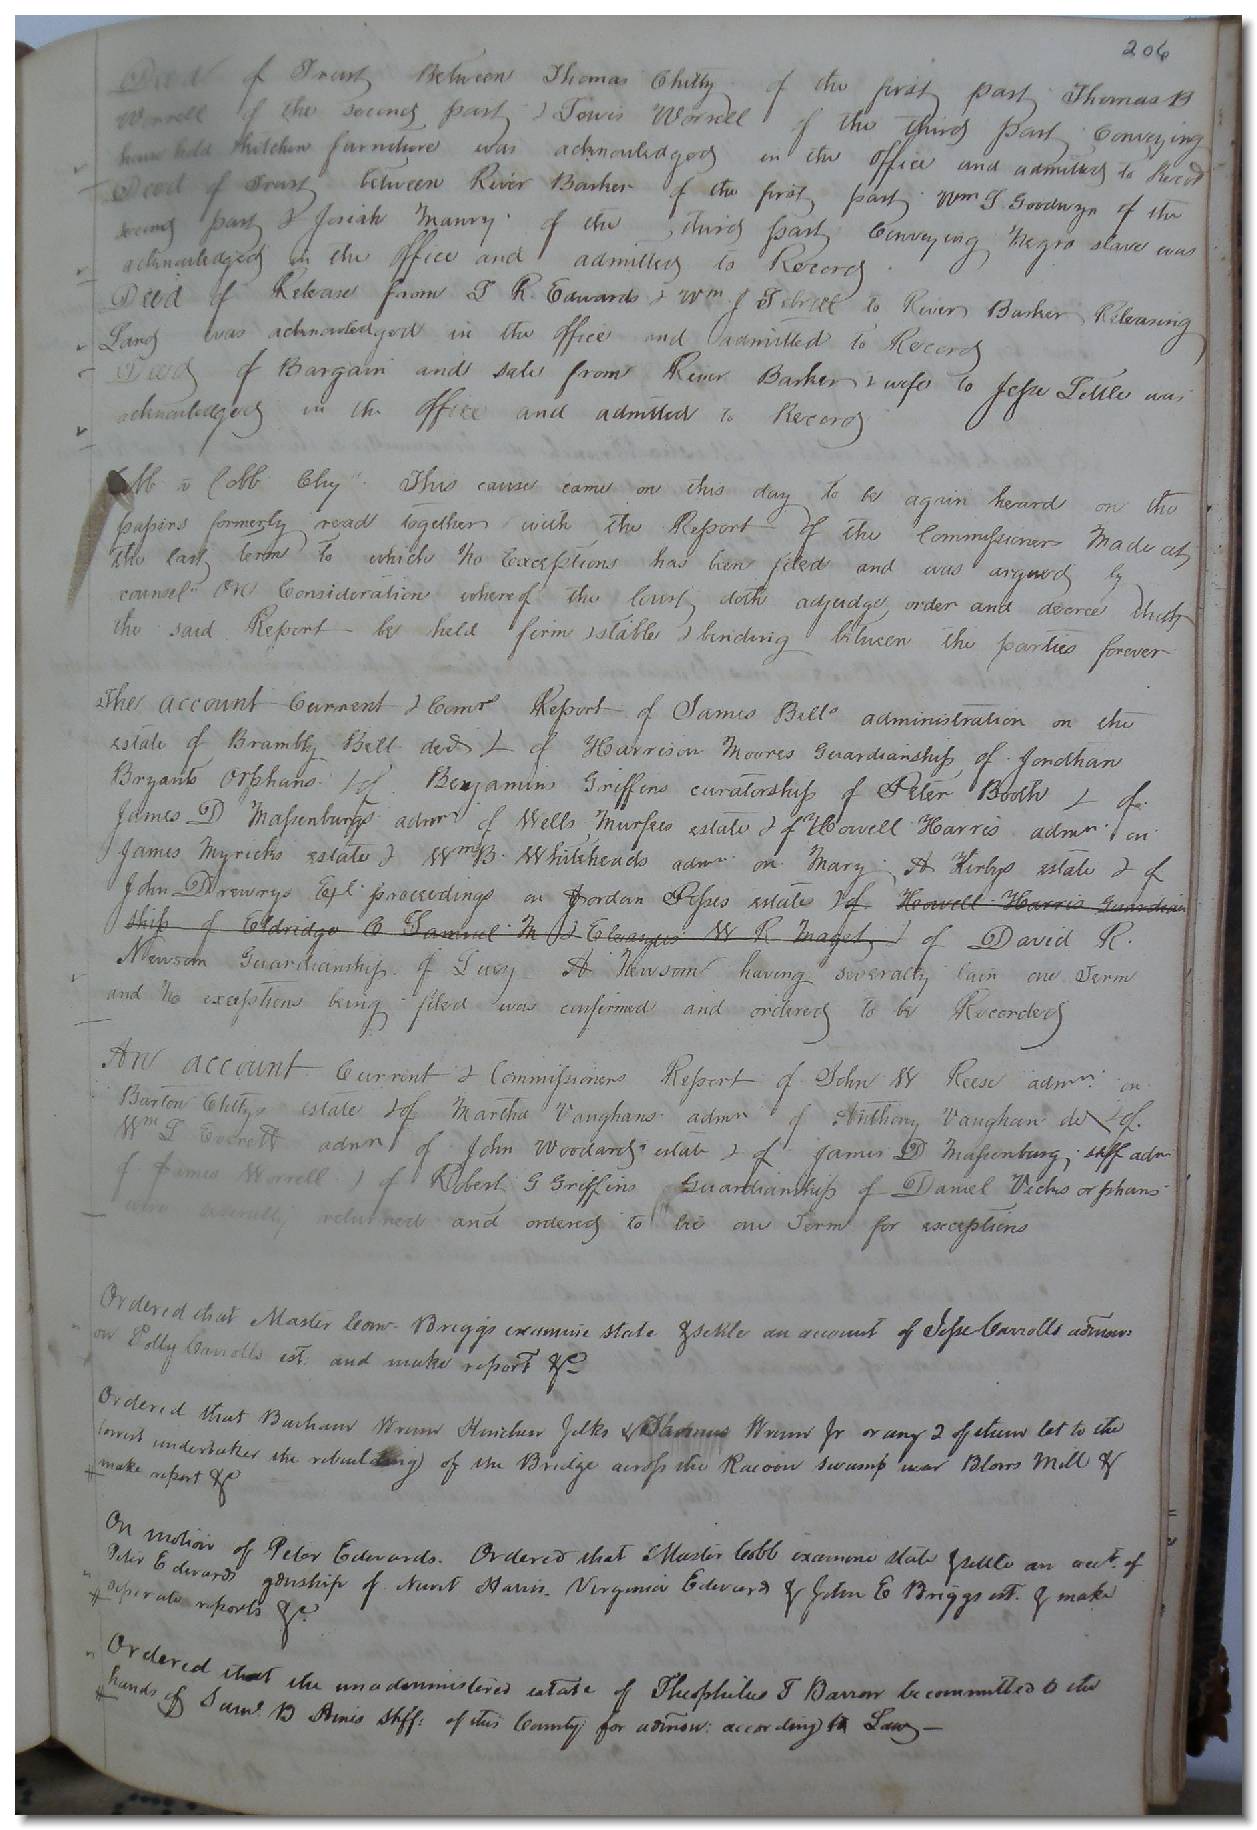 206
Deed of Trust Between Thomas Chitty of the first part Thomas B
Worrell of the second part & Lewis Worrell of the third part Conveying
house hold & kitchen furniture was acknowledged in the office and admitted to Record
Deed of Trust between River Barker of the first part Wm T Goodwyn of the
second part & Josiah Maury of the third part Conveying Negro slave was
acknowledged in the office and admitted to Record
Deed of Release from T R. Edwards & Wm J to River Barker Releasing
Land was acknowledged in the office and admitted to Record
Deed of Bargain and sale from River Barker & wife to Jesse Little was
acknowledged in the office and admitted to Record
Cobb v Cobb Chy This cause came on this day to be again heard on the
papers formerly read together with the Report of the Commissioner Made at
the last term to which No Exceptions has been filed and was argued by
counsel On Consideration whereof the Court doth adjudge order and decree that
the said Report be held firm & stable & binding between the parties forever
The account Current & Comrs Report of James Bells administration on the
estate of Brambly Bell decd & of Harrison Moores Guardianship of Jonathan
Bryants Orphans & of Benjamin Griffins curatorship of Peter Booth & of
James D Massenburgs admr of Wells Murfees estate & of Howell Harris admr on
James Myricks estate & Wm B. Whiteheads admr on Mary A Kirbys estate & of
John Drewrys Exl proceedings on Jordan estate & of Howell Harris Guardian
ship of Eldridge B Samuel M & W R Maget & of David R.
Newsom Guardianship of Lucy A Newsom having severally lain one Term
and No exceptions being filed was confirmed and ordered to be Recorded
An account Current & Commissioners Report of John W Reese admr on
Barton Chittys estate & of Martha Vaughans admr of Anthony Vaughan de & of
Wm T Everett admr of John Woodards estate & of James D Massenburg, shff adm
of James Worrell & of Robert G Griffins Guardianship of Daniel Vicks orphans
were severally returned and ordered to lie one Term for exceptions
Ordered that Master Com. Briggs examine state & settle an account of Jesse Carrolls admon:
on Polly Carrolls est. and make report &c
Ordered that Barham Wrenn Hincher Jelks & Thomas Wrenn Jr or any 2 of them let to the
lowest undertaker the rebuilding of the Bridge across the Racoon swamp near Blows Mill &
make report &c
On motion of Peter Edwards. Ordered that Master Cobb examine state & settle an acct. of
Peter Edwards gdnship of Newit Harris Virginia Edwards & John E Briggs est. & make
seperate reports &c.
Ordered that the unadministered estate of Theophilus T Barrow be committed to the
hands of Saml. B Hines Shff: of this County for admon: according to Law —